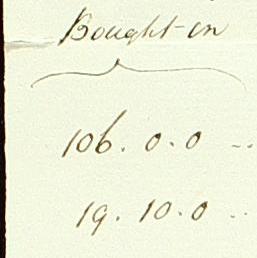 Bought in
106. 0. 0 --
19. 10. 0 --